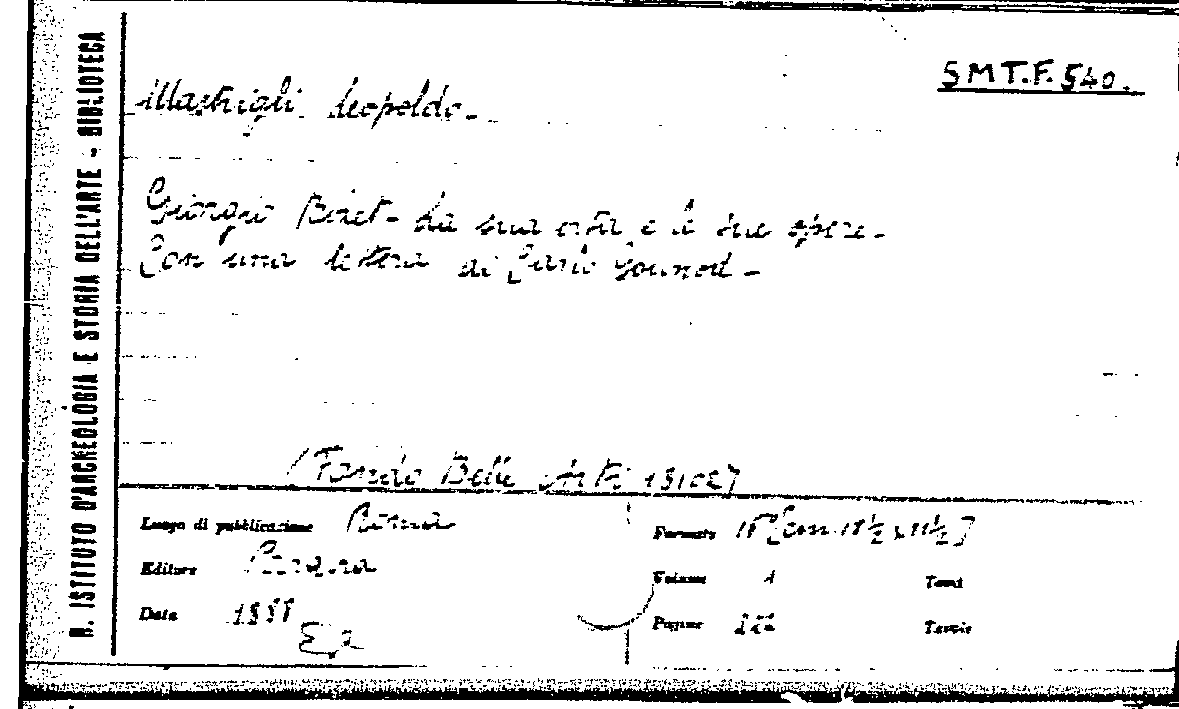 R. ISTITUTO D'ARCHEOLOGIA E STORIA DELL'ARTE - BIBLIOTECA
SMT.F.540.
Mastrigli Leopoldo.
Giorgio Bizet - La sua vita e le sue opere.
Con una lettera di Carlo Gounod -
(Fondo Belle Arti 15102)
Luogo di pubblicazione Roma
Editore
Data 1888
Formato 16° [cm 18½ x 11½]
Volume 1 Tomi
Pagine Tavole